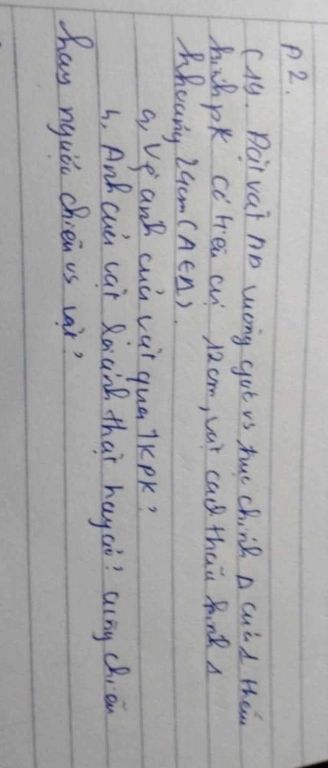 A2.
C14. Đặt vật AB vuông góc vs trục chính Δ của 1 thấu
kính pk có tiêu cự 12cm, vật cách thấu kính 1
khoảng 24cm (A ∈ Δ).
a, Vẽ ảnh của vật qua TKPK?
b, Ảnh của vật là ảnh thật hay ảo? cùng chiều
hay ngược chiều vs vật?